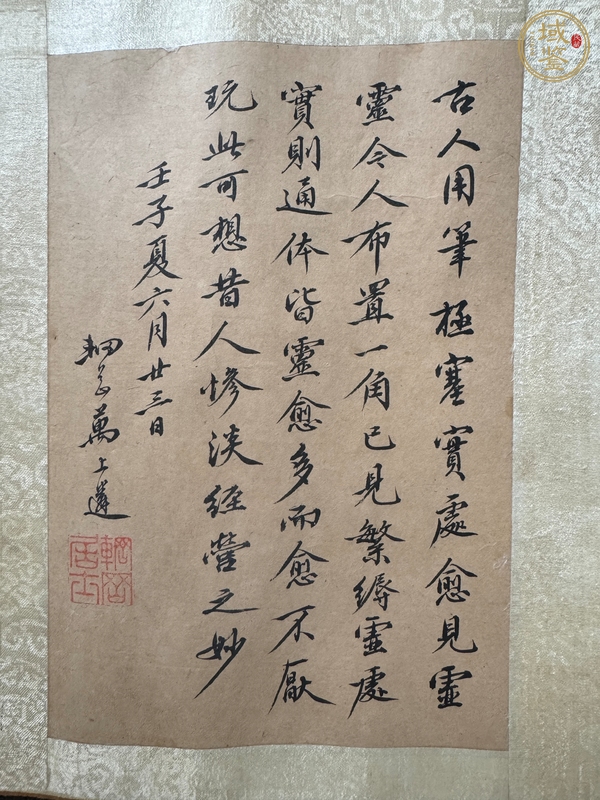 古人用筆極塞實處愈見虛
靈今人布置一角已見繁縟虛處
實則通体皆靈愈多而愈不厭
玩此可想昔人慘淡經營之妙
壬子夏六月廿三日
輞岡萬上遴
輞岡居士
域鑒